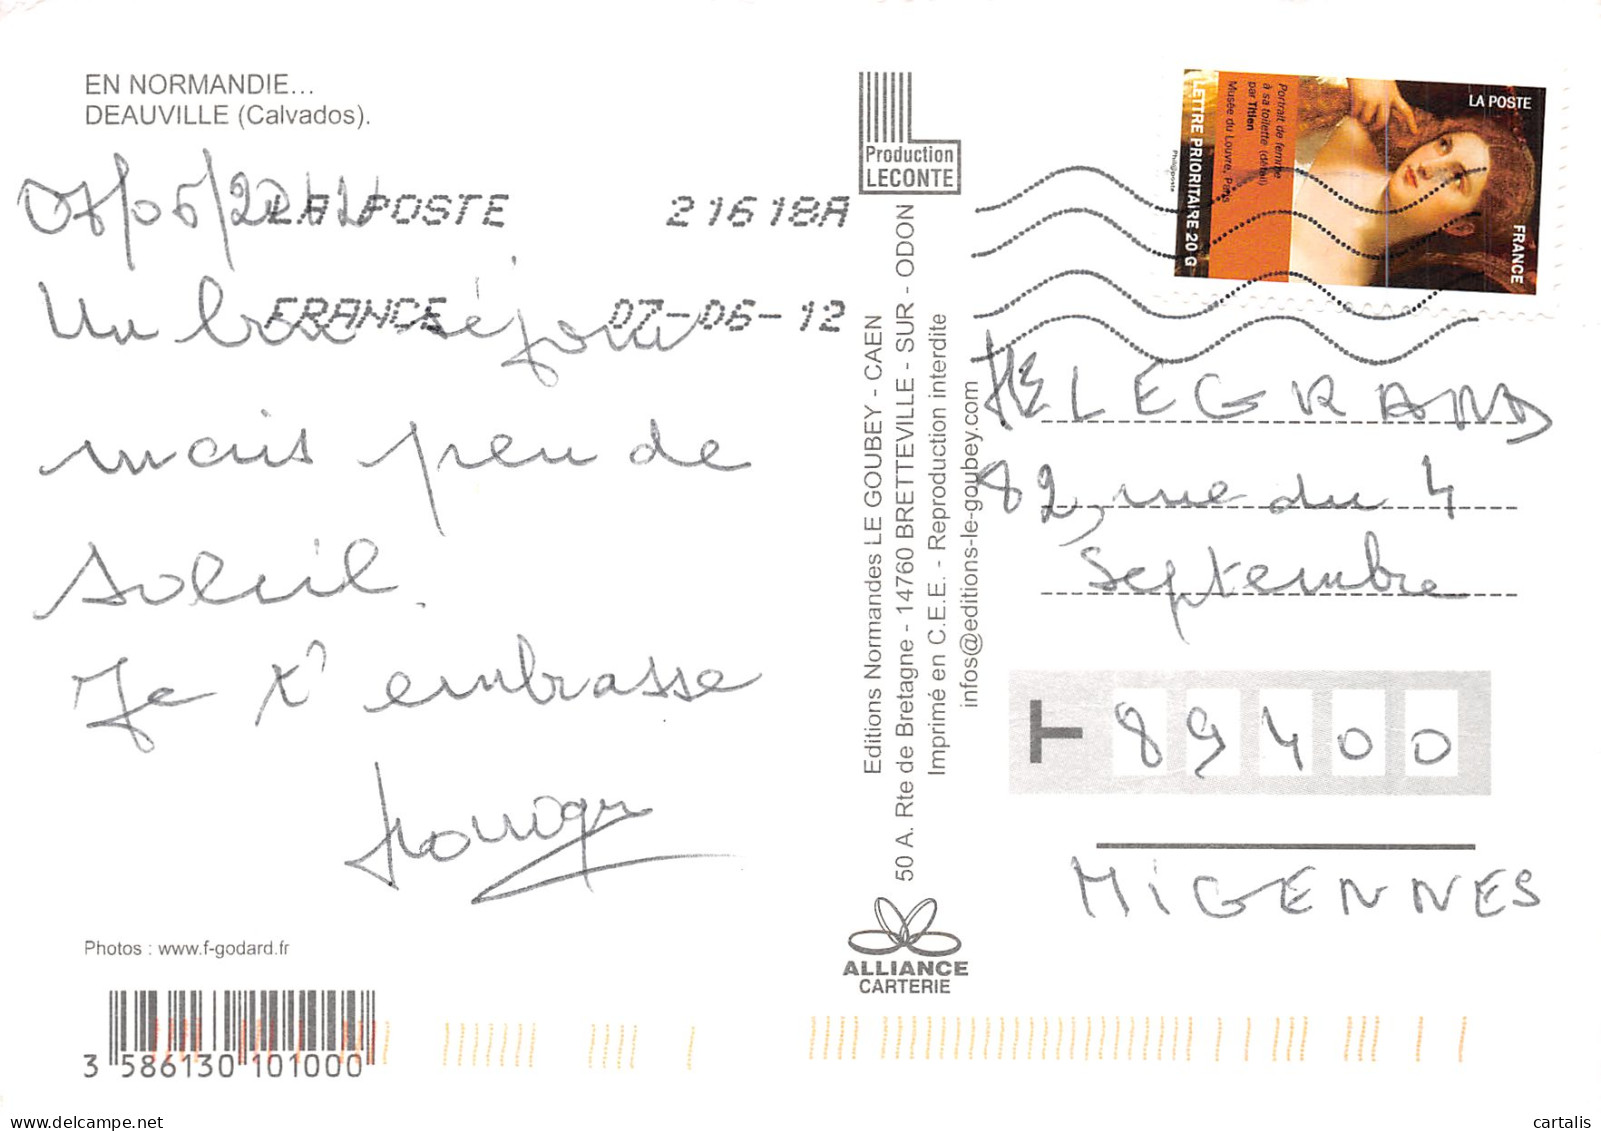 EN NORMANDIE...
DEAUVILLE (Calvados).
LA POSTE 21618A
FRANCE 07-06-12
Un bon séjour
mais peu de
soleil.
Je t'embrasse
Photos : www.f-godard.fr
3 586130 101000
Production
LECONTE
Editions Normandes LE GOUBEY - CAEN
50 A. Rte de Bretagne - 14760 BRETTEVILLE - SUR - ODON
Imprimé en C.E.E. - Reproduction interdite
infos@editions-le-goubey.com
ALLIANCE
CARTERIE
LA POSTE
FRANCE
Portrait de femme
à sa toilette (détail)
par Titien
Musée du Louvre, Paris
LETTRE PRIORITAIRE 20 G
Philaposte
LEGRAND
82, rue du 4
Septembre
T 89400
MIGENNES
cartalis
delcampe.net